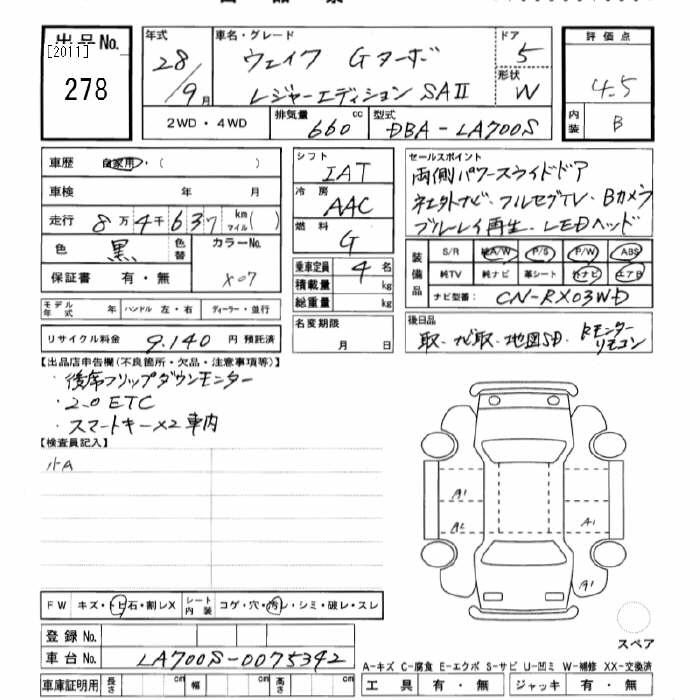 出品No.
[2011]
278
年式
28/9月
車名・グレード
ウェイク Gターボ
レジャーエディション SAⅡ
ドア
5
形状
W
評価点
4.5
内装
B
2WD・4WD
排気量 660 cc
型式 DBA-LA700S
車歴 自家用・( )
車検 年 月
走行 8万4千637 km マイル( )
色 黒
色替
カラーNo.
X07
保証書 有・無
モデル年式 年 ハンドル 左・右 ディーラー・並行
リサイクル料金 9.140 円 預託済
シフト
IAT
冷房
AAC
燃料
G
乗車定員 4 名
積載量 kg
総重量 kg
名変期限
月 日
セールスポイント
両側パワースライドドア
社外ナビ、フルセグTV、Bカメラ
ブルーレイ再生、LEDヘッド
装備品
S/R 純A/W P/S P/W ABS
純TV 純ナビ 革シート 外ナビ エアB
ナビ型番 CN-RX03WD
後日品
取、ナビ取、地図SD、Rモニターリモコン
【出品店申告欄(不良箇所・欠品・注意事項等)】
・後席フリップダウンモニター
・2.0 ETC
・スマートキー×2 車内
【検査員記入】
小A
A1
A2
A1
A1
FW キズ・トビ石・割レX
シート内装 コゲ・穴・汚レ・シミ・破レ・スレ
登録No.
車台No. LA700S-0075342
車庫証明用 長さ cm 幅 cm 高さ cm
スペア
A-キズ C-腐食 E-エクボ S-サビ U-凹ミ W-補修 XX-交換済
工具 有・無 ジャッキ 有・無